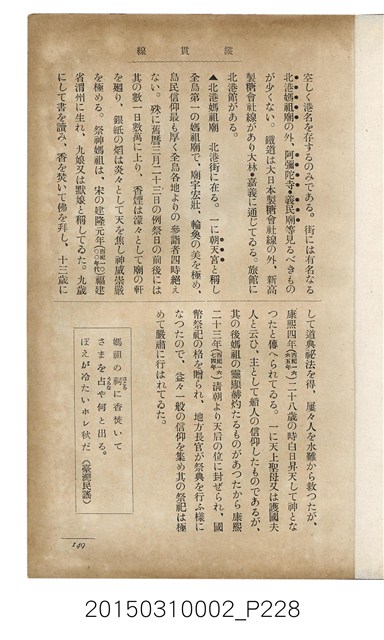 縱貫線
空しく港名を存するのみである。街には有名なる
北港媽祖廟の外、阿彌陀寺・義民廟等見るべきもの
が少くない。鐵道は大日本製糖會社線の外、新高
製糖會社線があり大林・嘉義に通じてゐる。旅館に
北港館がある。
▲北港媽祖廟 北港街に在る。一に朝天宮と稱し
全島第一の媽祖廟で、廟宇宏壯、輪奐の美を極め、
島民信仰最も厚く全島各地よりの參詣者四時絶え
ない。殊に舊曆三月二十三日の例祭日の前後には
其の數一日數萬に上り、香煙は濛々として廟の軒
を廻り、銀紙の焰は炎々として天を焦し神威崇嚴
を極める。祭神媽祖は、宋の建隆元年(西紀一〇年代)福建
省湄州に生れ、九娘又は默娘と稱してゐた。九歲
にして書を讀み、香を焚いて佛を拜し、十三歲に
して道典祕法を得、屢々人を水難から救つたが、
康熙四年(西紀一六六五年)二十八歲の時白日昇天して神とな
つたと傳へられてゐる。一に天上聖母又は護國夫
人と云ひ、主として船人の信仰したものであるが、
其の後媽祖の靈顯赫灼たるものがあつたから康熙
二十三年(西紀一六八四年)清朝より天后の位に封ぜられ、國
幣祭祀の格を贈られ、地方長官が祭典を行ふ樣に
なつたので、益々一般の信仰を集め其の祭祀は極
めて嚴肅に行はれてゐた。
媽祖の祠に香焚いて
さまを占や何と出る。
ぽえが冷たいホレ秋だ(臺灣民謠)
149
20150310002_P228